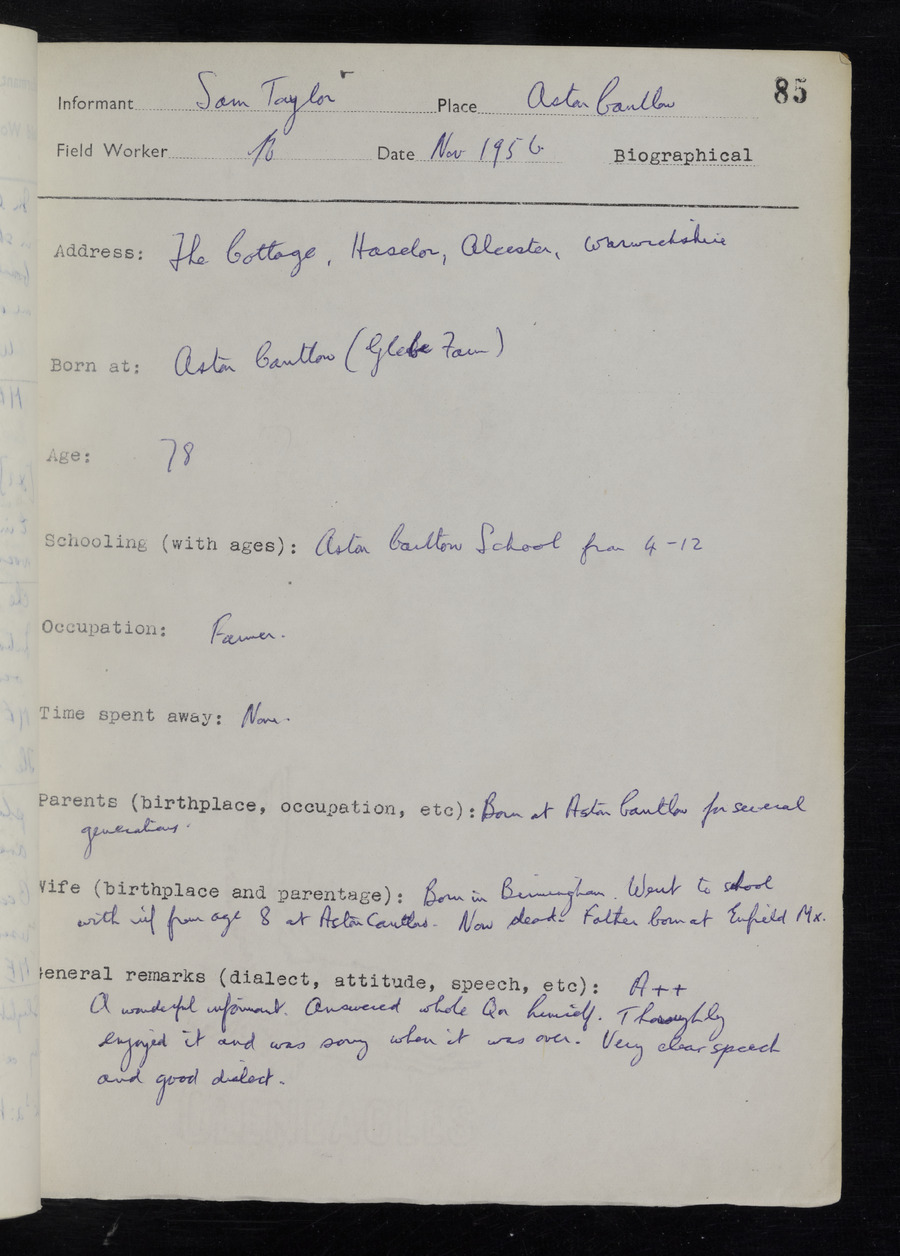 85
Informant Sam Taylor Place Aston Cantlow
Field Worker Date Nov 1956 Biographical
Address: The Cottage, Haselor, Alcester, Warwickshire
Born at: Aston Cantlow (Glebe Farm)
Age: 78
Schooling (with ages): Aston Cantlow School from 4-12
Occupation: Farmer.
Time spent away: None.
Parents (birthplace, occupation, etc): Born at Aston Cantlow for several
generations.
Wife (birthplace and parentage): Born in Birmingham. Went to school
with inf from age 8 at Aston Cantlow. Now dead. Father born at Enfield Mx.
General remarks (dialect, attitude, speech, etc): A++
A wonderful informant. Answered whole Qn himself. Thoroughly
enjoyed it and was sorry when it was over. Very clear speech
and good dialect.